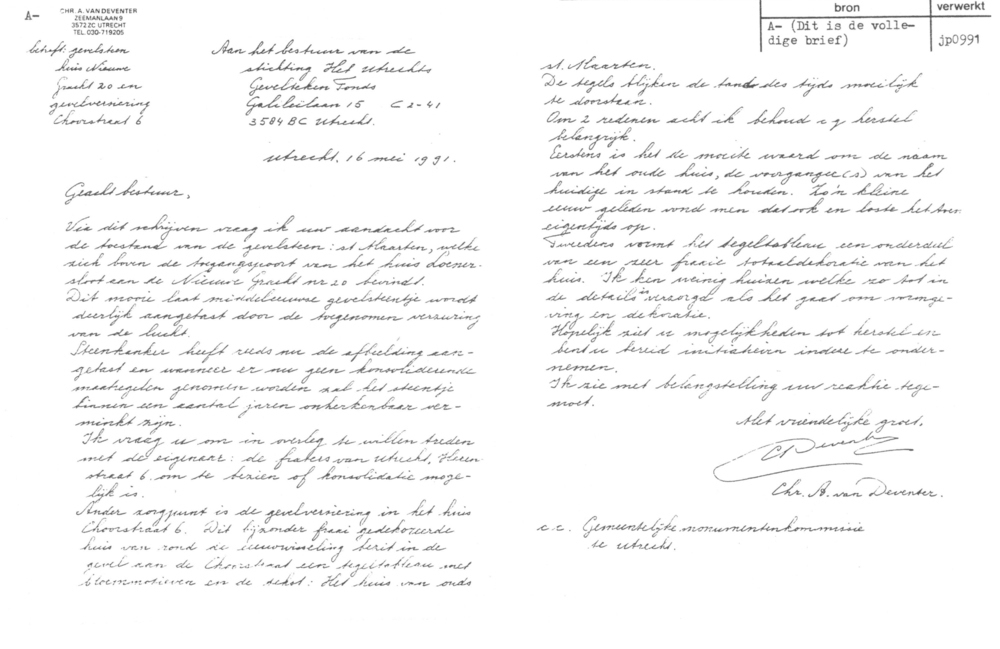 A-
CHR. A. VAN DEVENTER
ZEEMANLAAN 9
3572 ZC UTRECHT
TEL. 030-719205
betreft: gevelsteen
huis Nieuwe
Gracht 20 en
gevelversiering
Choorstraat 6
Aan het bestuur van de
stichting Het Utrechts
Gevelteken Fonds
Galileilaan 15 C2-41
3584 BC Utrecht.
Utrecht, 16 mei 1991.
Geacht bestuur,
Via dit schrijven vraag ik uw aandacht voor
de toestand van de gevelsteen: st Maarten, welke
zich boven de toegangspoort van het huis Loener-
sloot aan de Nieuwe Gracht nr 20 bevindt.
Dit mooie laat middeleeuwse gevelsteentje wordt
deerlijk aangetast door de toegenomen verzuring
van de lucht.
Steenkanker heeft reeds nu de afbeelding aan-
getast en wanneer er nu geen konsoliderende
maatregelen genomen worden zal het steentje
binnen een aantal jaren onherkenbaar ver-
minkt zijn.
Ik vraag u om in overleg te willen treden
met de eigenaar: de fraters van Utrecht, Heren
straat 6, om te bezien of konsolidatie moge-
lijk is.
Ander zorgpunt is de gevelversiering in het huis
Choorstraat 6. Dit bijzonder fraai gedekoreerde
huis van rond de eeuwwisseling bezit in de
gevel aan de Choorstraat een tegeltableau met
bloemmotieven en de tekst: Het huis van ouds
bron
verwerkt
A- (Dit is de volle-
dige brief)
jp0991
st. Maarten.
De tegels blijken de tand des tijds moeilijk
te doorstaan.
Om 2 redenen acht ik behoud c q herstel
belangrijk.
Eerstens is het de moeite waard om de naam
van het oude huis, de voorganger(s) van het
huidige in stand te houden. Zo'n kleine
eeuw geleden vond men dat ook en loste het toen
eigentijds op.
Tweedens vormt het tegeltableau een onderdeel
van een zeer fraaie totaaldekoratie van het
huis. Ik ken weinig huizen welke zo tot in
de details verzorgd als het gaat om vormge-
ving en dekoratie.
Hopelijk ziet u mogelijkheden tot herstel en
bent u bereid initiatieven in deze te onder-
nemen.
Ik zie met belangstelling uw reaktie tege-
moet.
Met vriendelijke groet,
Chr. A. van Deventer.
c.c. Gemeentelijke monumentenkommissie
te Utrecht.